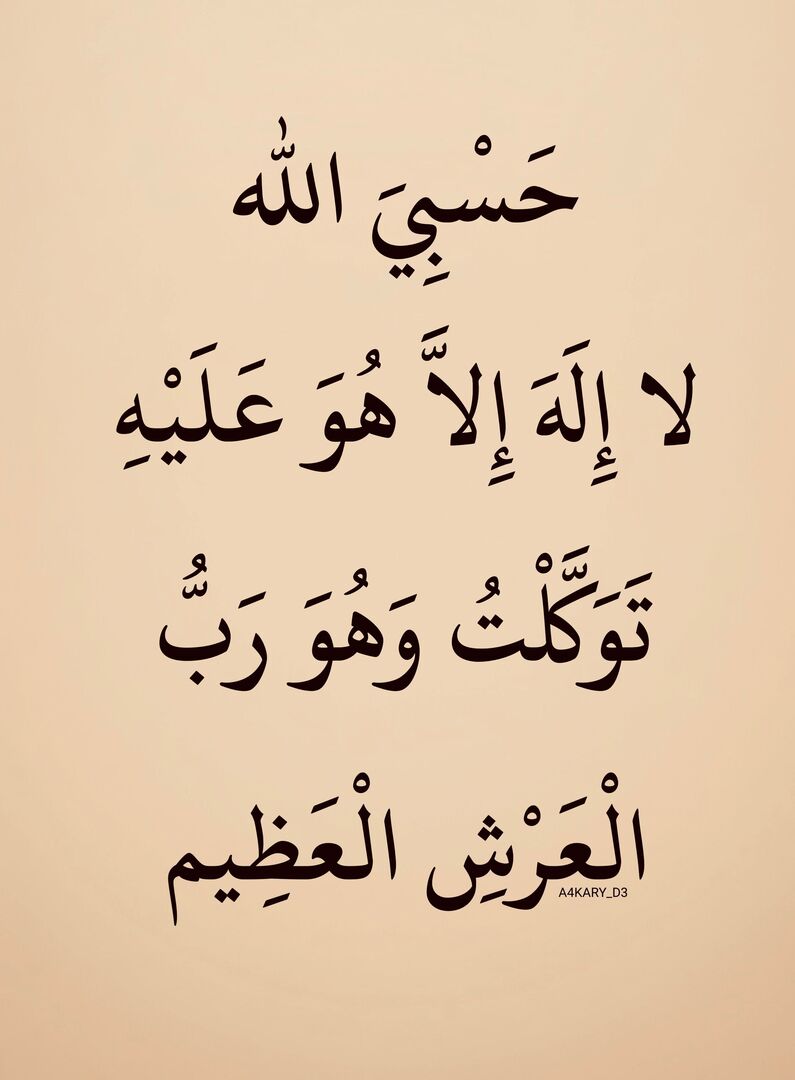 حَسْبِيَ اللّٰه
لا إِلَهَ إِلاَّ هُوَ عَلَيْهِ
تَوَكَّلْتُ وَهُوَ رَبُّ
الْعَرْشِ الْعَظِيم
A4KARY_D3